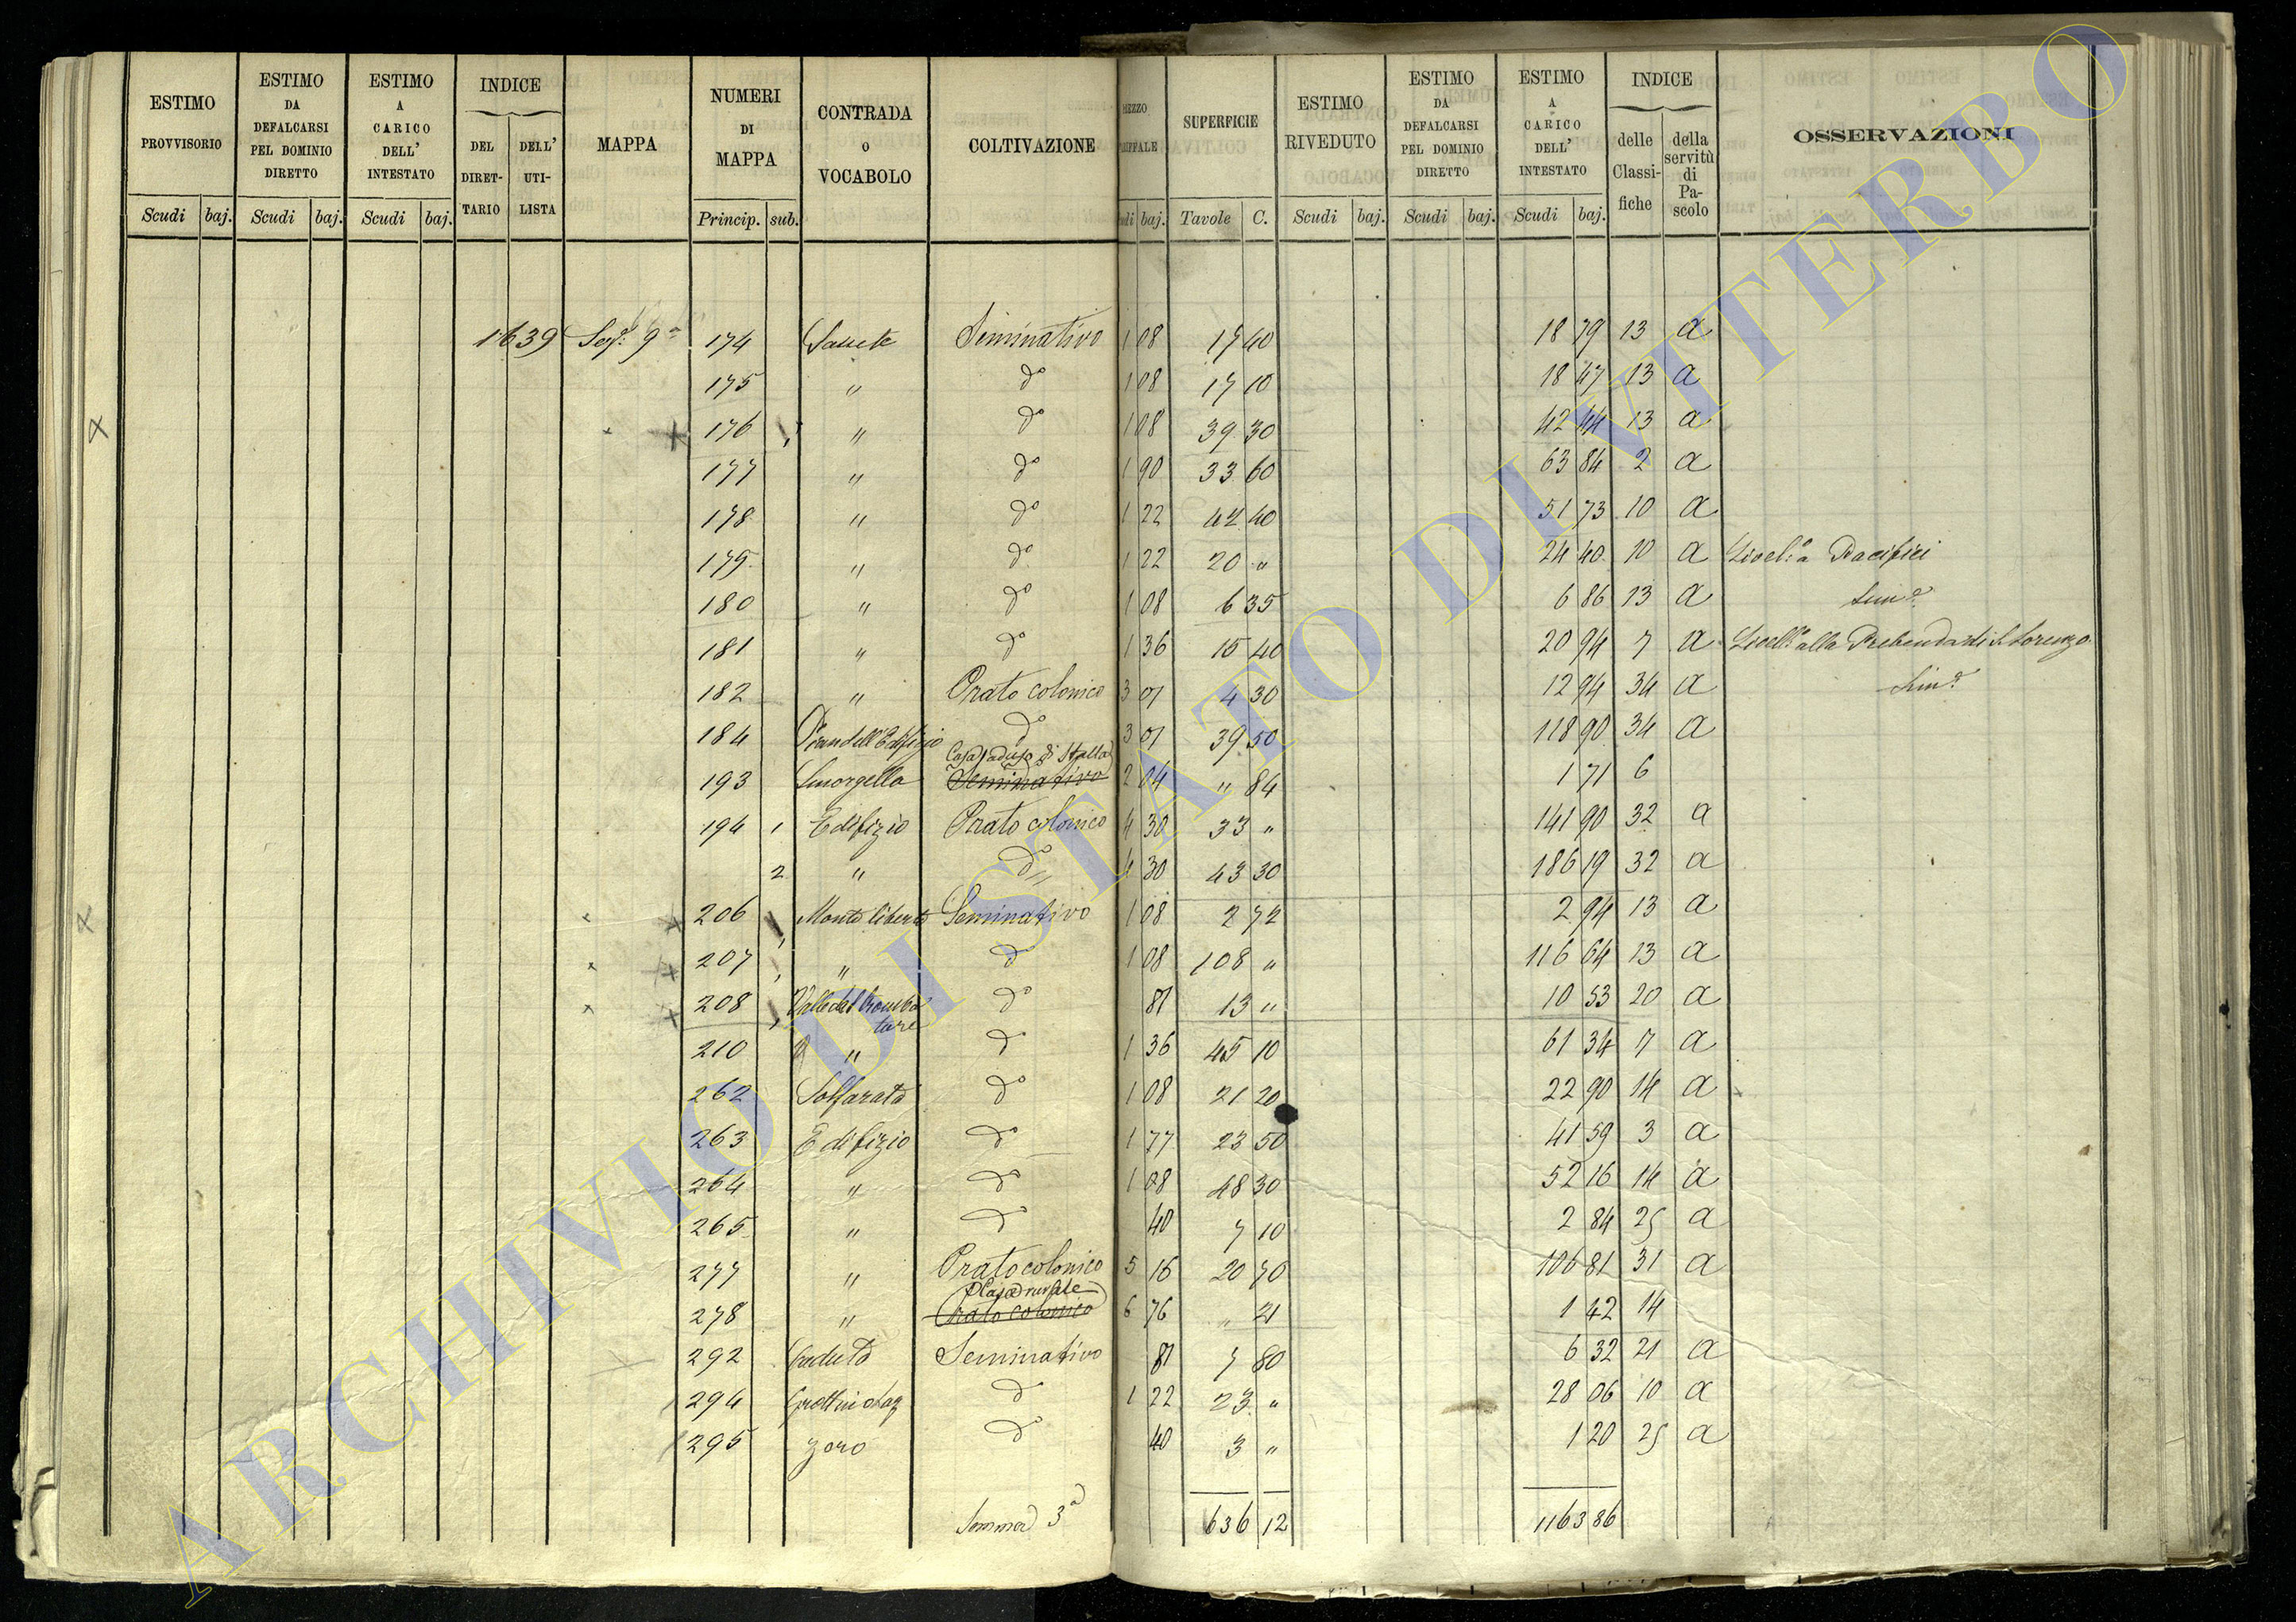 ESTIMO PROVVISORIO | ESTIMO DA DEFALCARSI PEL DOMINIO DIRETTO | ESTIMO A CARICO DELL' INTESTATO | INDICE DEL DIRET- TARIO | DELL' UTI- LISTA | MAPPA | NUMERI DI MAPPA | CONTRADA O VOCABOLO | COLTIVAZIONE | REZZO RIFFALE | SUPERFICIE | ESTIMO RIVEDUTO | ESTIMO DA DEFALCARSI PEL DOMINIO DIRETTO | ESTIMO A CARICO DELL' INTESTATO | INDICE delle Classi- fiche | della servitù di Pa- scolo | OSSERVAZIONI
Scudi baj. Scudi baj. Scudi baj. Princip. sub. udi baj. Tavole C. Scudi baj. Scudi baj. Scudi baj.
1639 Sez.e 9a 174 Seminativo 1 08 17 40 18 79 13 a
175 " do 1 08 17 10 18 47 13 a
176 1 " do 1 08 39 30 42 44 13 a
177 " do 1 90 33 60 63 84 2 a
178 " do 1 22 42 40 51 73 10 a
179 " do 1 22 20 " 24 40 10 a Livel: a Pacifici
180 " do 1 08 6 35 6 86 13 a
181 " do 1 36 15 40 20 94 7 a Livell.o alla Prebenda di S. Lorenzo
182 " Prato colonico 3 01 4 30 12 94 34 a
184 Pian dell'Edifizio do 3 01 39 50 118 90 34 a
Casa ad uso di Stalla
193 Smorgella Seminativo 2 04 " 84 1 71 6
194 1 Edifizio Prato colonico 4 30 33 " 141 90 32 a
2 " do 4 30 43 30 186 19 32 a
206 1 Seminativo 1 08 2 72 2 94 13 a
207 1 " do 1 08 108 " 116 64 13 a
208 1 Valle del do 81 13 " 10 53 20 a
tare
210 " do 1 36 45 10 61 34 7 a
262 Solfarata do 1 08 21 20 22 90 14 a
263 Edifizio do 1 77 23 50 41 59 3 a
264 " do 1 08 48 30 52 16 14 a
265 " do 40 7 10 2 84 25 a
277 " Prato colonico 5 16 20 70 106 81 31 a
Casa rurale
278 " Prato colonico 6 76 " 21 1 42 14
292 Caduta Seminativo 81 7 80 6 32 21 a
294 do 1 22 23 " 28 06 10 a
295 zoro do 40 3 " 1 20 25 a
Somma 3a 636 12 1163 86
ARCHIVIO DI STATO DI VITERBO